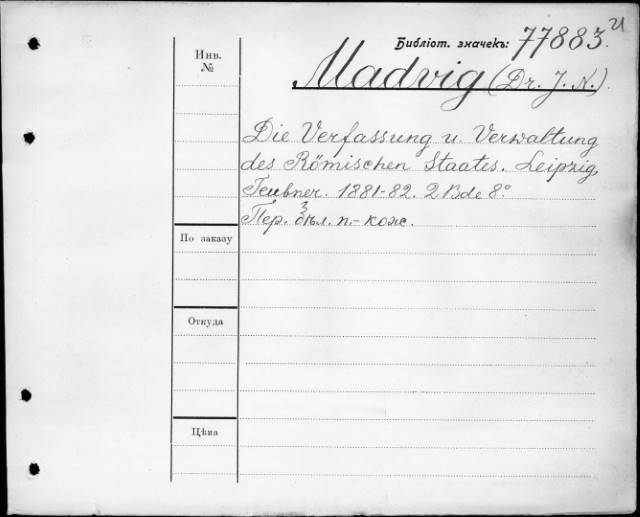 Библіот. значекъ: 77883.
Инв.
№
Madvig (Dr. J. N.)
Die Verfassung u. Verwaltung
des Römischen Staates. Leipzig,
Teubner. 1881-82. 2 Bde 8°
Пер. п.-кож.
По заказу
Откуда
Цѣна